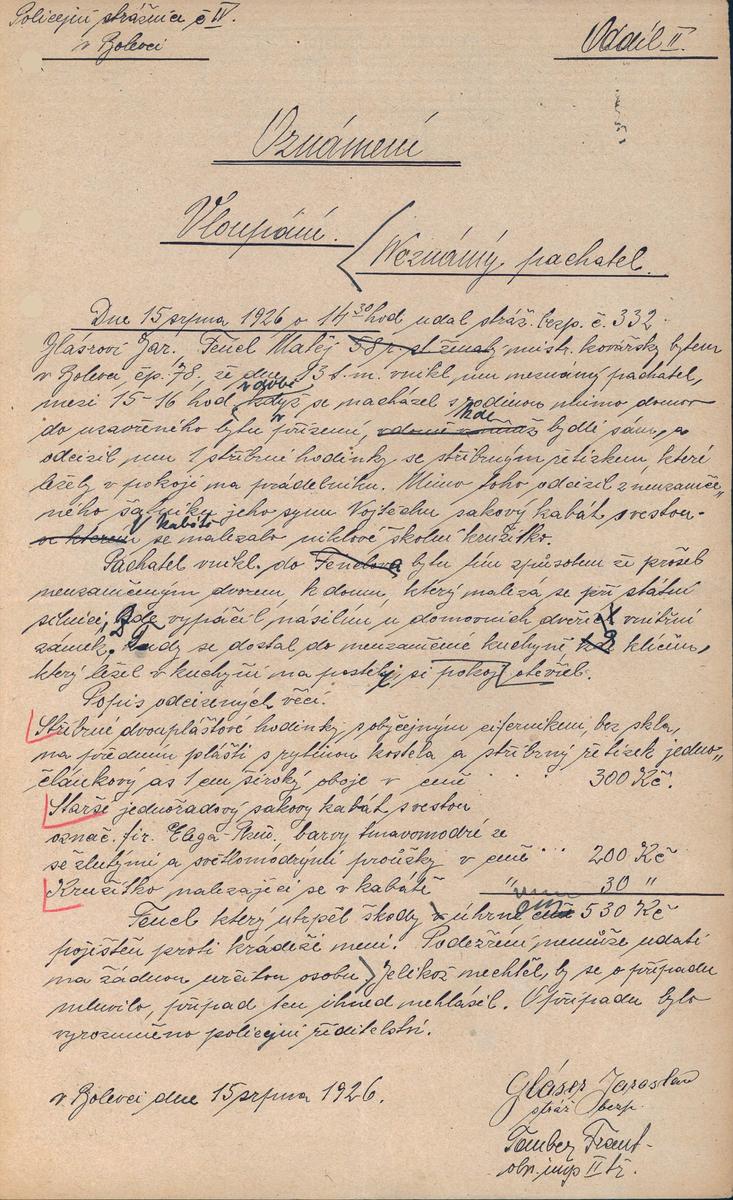 Policejní strážnice č IV.
v Bolevci
Oddíl II.
Oznámení
Vloupání.
Neznámý pachatel.
Dne 15 srpna 1926 o 14 30 hod udal stráž. bezp. č. 332
Glásrovi Jar. Fencl Matěj 38 r. st. ženatý mistr. kovářský bytem
v Bolevci čp. 78. že dne 13 t. m. vnikl mu neznámý pachatel,
v době
mezi 15-16 hod, když se nacházel s rodinou mimo domov
kde
do uzavřeného bytu v přízemí, bydlí sám, a
odcizil mu 1 stříbrné hodinky se stříbrným řetízkem, které
ležely v pokoji na prádelníku. Mimo toho odcizil z neuzamče„
ného šatníku jeho synu Vojtěchu sakový kabát s vestou-
V kabátě
v kterém se nalezalo niklové školní kružítko.
Pachatel vnikl do Fenclova bytu tím způsobem že prošel
neuzamčeným dvorem k domu, který nalezá se při státní
silnici, kde vypáčil násilím u domovních dveří vnitřní
zámek. Tudy se dostal do neuzamčené kuchyně, klíčem,
který ležel v kuchyni na posteli, si pokoj otevřel.
Popis odcizených věcí.
Stříbrné dvouplášťové hodinky s obyčejným ciferníkem, bez skla,
na předním plášti s rytinou kostela a stříbrný řetízek jedno„
článkový as 1 cm široký oboje v ceně . . . 300 Kč.
Starší jednořadový sakový kabát s vestou
označ. fir. Elega Plzeň, barvy tmavomodré ze
se žlutými a světlomodrými proužky v ceně ... 200 Kč
Kružítko nalezající se v kabátě " 30 "
Fencl který utrpěl škody v úhrné ceně 530 Kč
pojištěn proti krádeži není. Podezření nemůže udati
na žádnou určitou osobu. Jelikož nechtěl, by se o případu
mluvilo, případ ten ihned nehlásil. O případu bylo
vyrozuměno policejní ředitelství.
v Bolevci dne 15 srpna 1926.
Gláser Jaroslav
stráž bezp.
Frant.
obv. insp II tř.